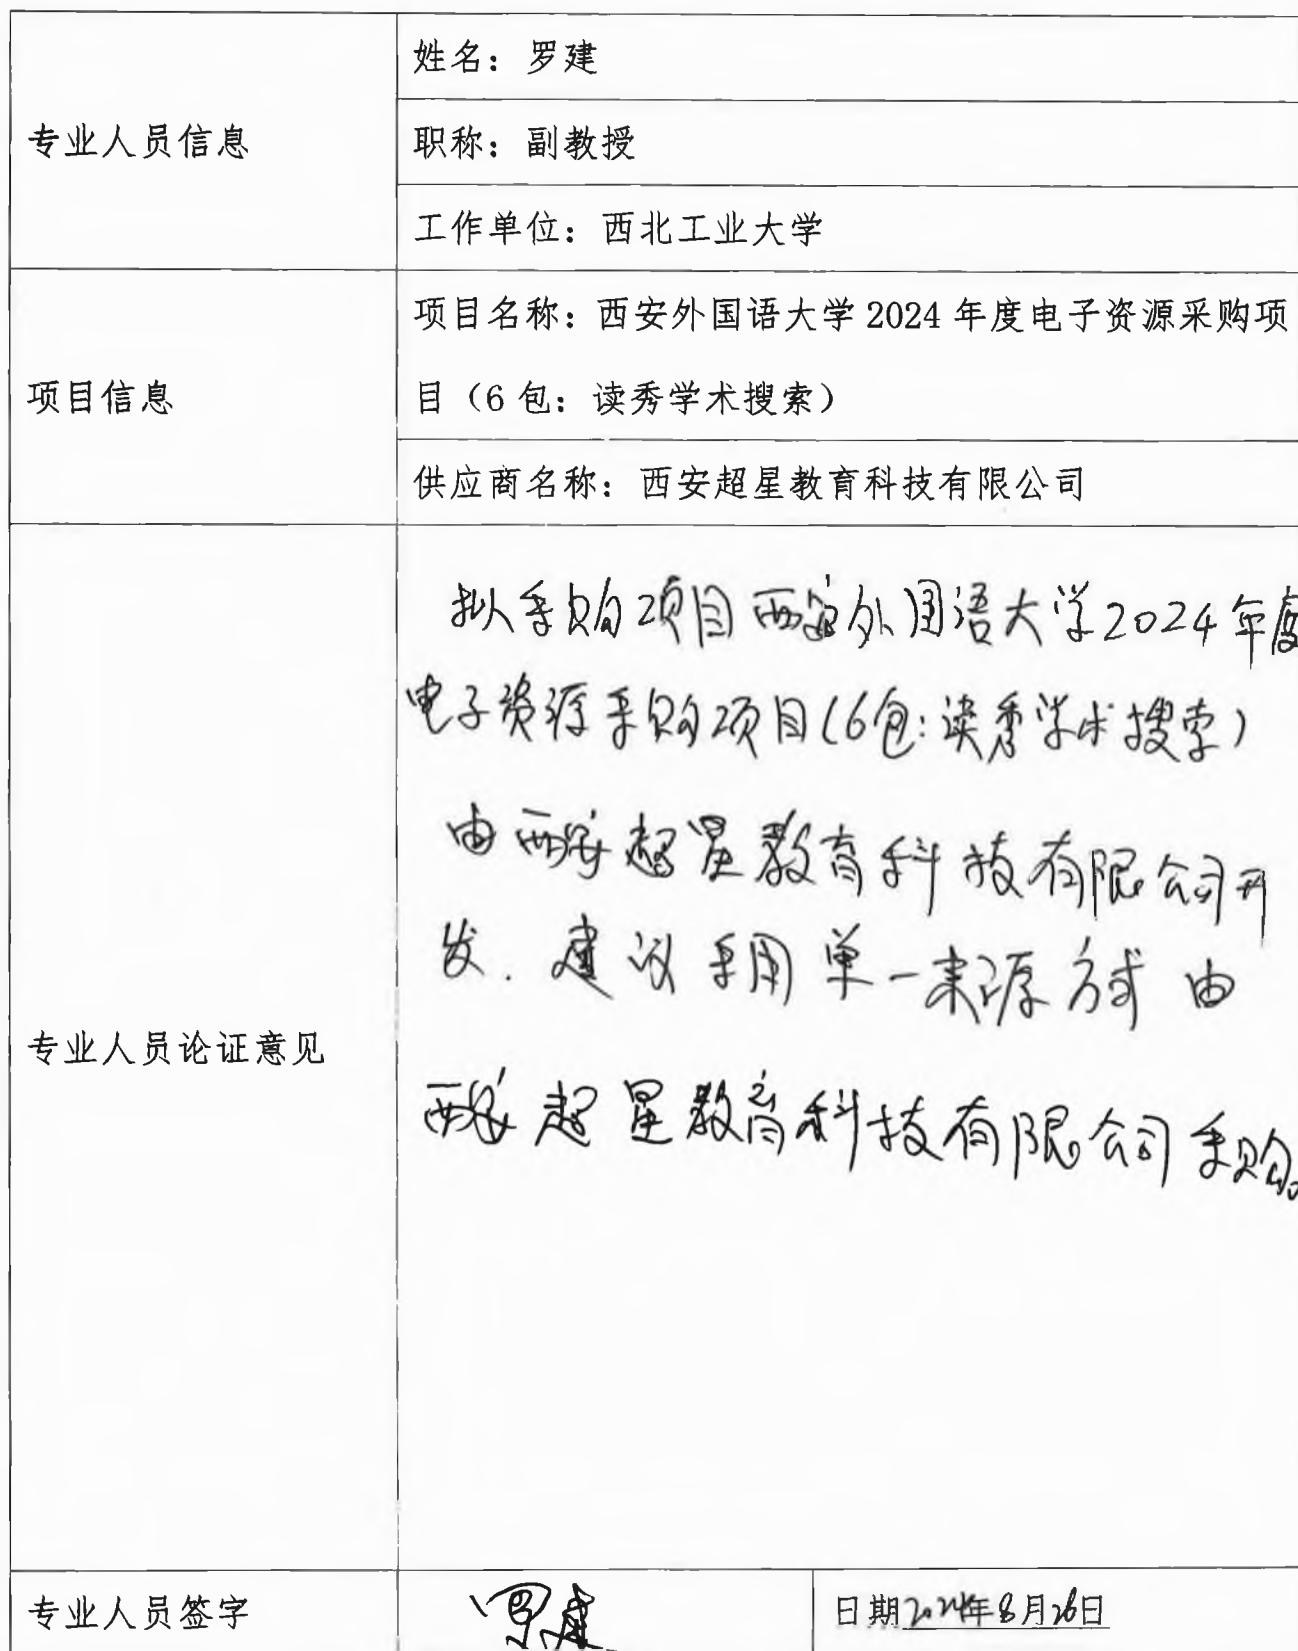 专业人员信息
姓名：罗建
职称：副教授
工作单位：西北工业大学
项目信息
项目名称：西安外国语大学 2024 年度电子资源采购项
目（6 包：读秀学术搜索）
供应商名称：西安超星教育科技有限公司
专业人员论证意见
拟采购项目西安外国语大学2024年度
电子资源采购项目(6包:读秀学术搜索)
由西安超星教育科技有限公司开
发.建议采用单一来源方式由
西安超星教育科技有限公司采购。
专业人员签字
罗建
日期2024年8月26日